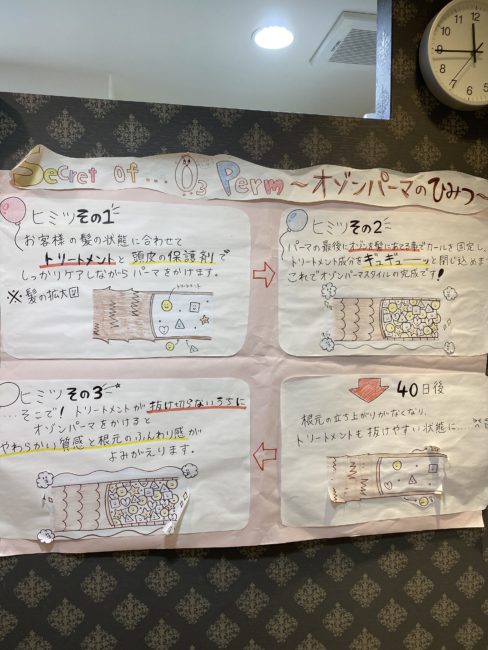 Secret Of... O3 Perm 〜オゾンパーマのひみつ〜
ヒミツその1
お客様の髪の状態に合わせて
トリートメントと頭皮の保護剤で
しっかりケアしながらパーマをかけます。
※髪の拡大図
トリートメント
ヒミツその2
パーマの最後にオゾンを髪にあてる事でカールを固定し、
トリートメント成分をギュギューーッと閉じ込めま
これでオゾンパーマスタイルの完成です!
40日後
根元の立ち上がりがなくなり、
トリートメントも抜けやすい状態に……
ヒミツその3
....そこで!トリートメントが抜け切らないうちに
オゾンパーマをかけると
やわらかい質感と根元のふんわり感が
よみがえります。
12
1
2
3
4
5
6
7
8
9
10
11